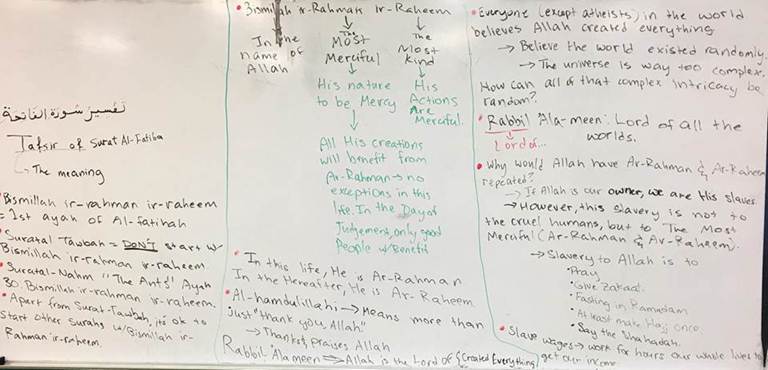 تفسير سورة الفاتحة
Tafsir of Surat Al-Fatiha
↳ The meaning
• Bismillah ir-rahman ir-raheem
= 1st ayah of Al-fatihah
• Suratal Tawbah = DON'T start w/
Bismillah ir-rahman ir-raheem.
• Suratal-Nahm "The Ants" Ayah
30 Bismillah ir-rahman ir-raheem.
• Apart from Surat-Tawbah, it's ok to
start other surahs w/Bismillah ir-
Rahman ir-raheem.
• Bismillah ir-Rahmans ir-Raheem
In the
name of
Allah
The
MOST
Merciful
The
Most
Kind
His nature
to be Mercy
His
Actions
Are
Merciful.
All His creations
will benefit from
Ar-Rahman → no
exceptions in this
life. In the Day of
Judgement, only good
People w/ Benefit
• In this life, He is Ar-Rahman
In the Hereafter, He is Ar-Raheem
• Al-hamdulillahi → Means more than
Just "thank you, Allah"
→ Thanks & praises Allah
Rabbil-'Alameen ⇒ Allah is the Lord of {Created Everything}
• Everyone (except atheists) in the world
believes Allah created everything
→ Believe the world existed randomly.
→ The universe is way too complex.
How can all of that complex intricacy be
random?
• Rabbil 'Ala-meen: Lord of all the
worlds.
Lord of...
• Why would Allah have Ar-Rahman & Ar-Raheem
repeated?
→ If Allah is our owner, we are His slaves.
→ However, this slavery is not to
the cruel humans, but to The Most
Merciful (Ar-Rahman & Ar-Raheem).
→ Slavery to Allah is to
• Pray
• Give Zakaat
• Fasting in Ramadam
• At least make Hajj once
• Say the Shahadah.
• Slave wages → work for hours our whole lives to
get our income